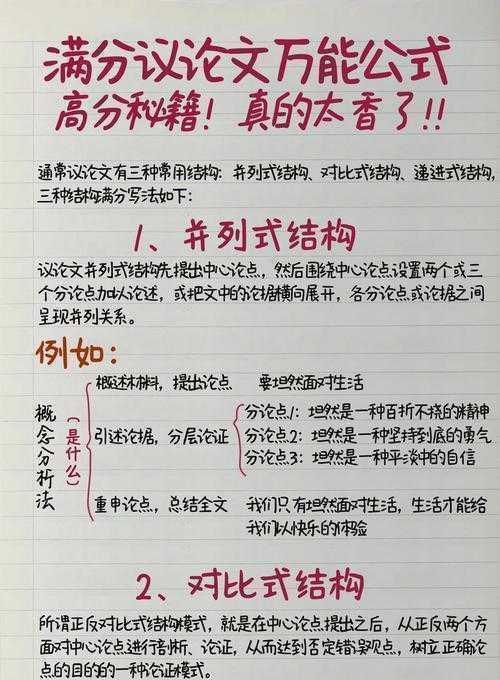 满分议论文万能公式
高分秘籍！真的太香了!!
通常议论文有三种常用结构：并列式结构、对比式结构、递进式结构，
三种结构满分写法如下：
1、并列式结构
议论文并列式结构先提出中心论点，然后围绕中心论点设置两个或三
个分论点加以论述，或把文中的论据横向展开，各分论点或论据之间
呈现并列关系。
例如：
概念分析法
(是什么)
概述材料，提出论点 要坦然面对生活
引述论据，分层论证
分论点1：坦然是一种百折不挠的精神
分论点2：坦然是一种坚持到底的勇气
分论点3：坦然是一种平淡中的自信
重申论点，总结全文 我们只有坦然面对生活，生活才能给
我们以快乐的体验
2、对比式结构
所谓正反对比式结构模式，就是在中心论点提出之后，从正反两个方
面对中心论点进行剖析、论证，从而达到否定错误观点，树立正确论
点的目的的一种论证模式。